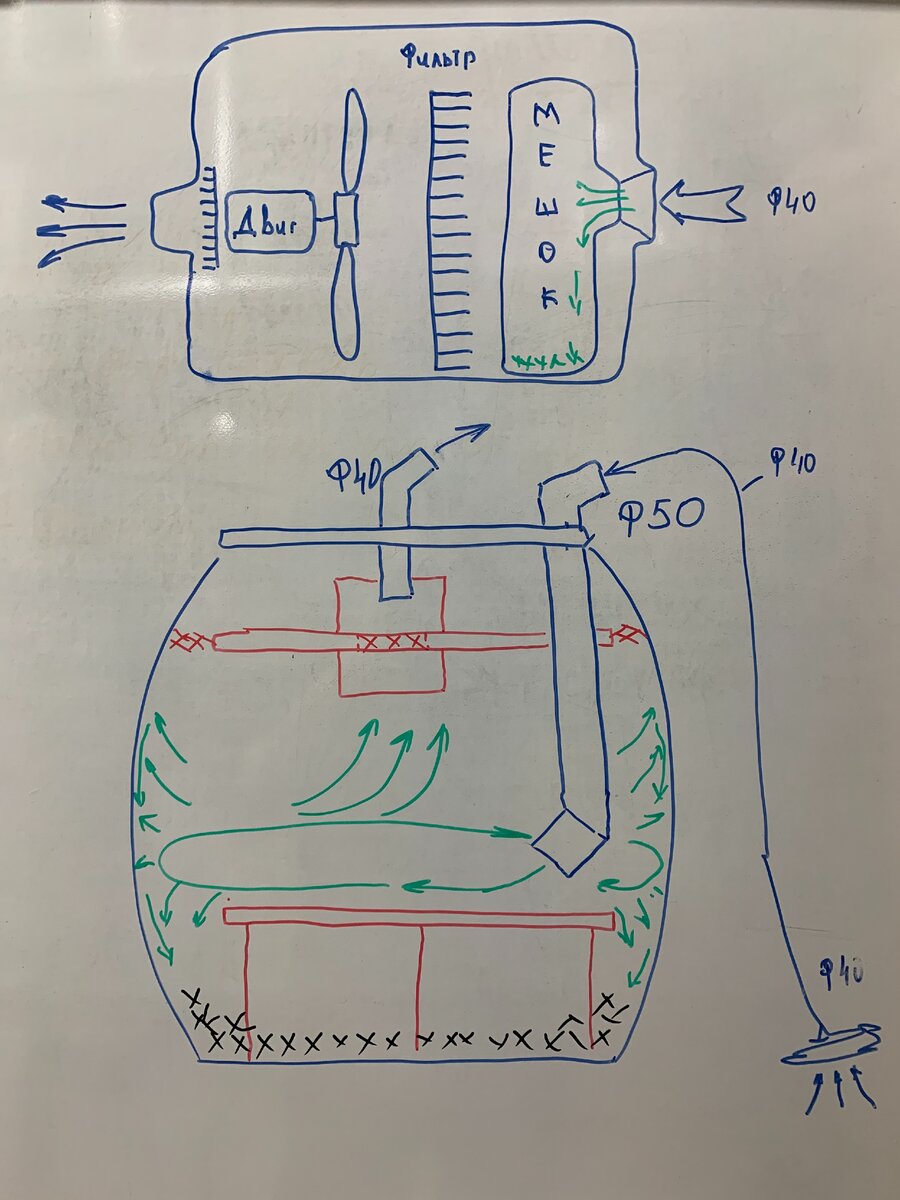 Фильтр
МЕШОК
Двиг
Ф40
Ф40
Ф40
Ф50
Ф40